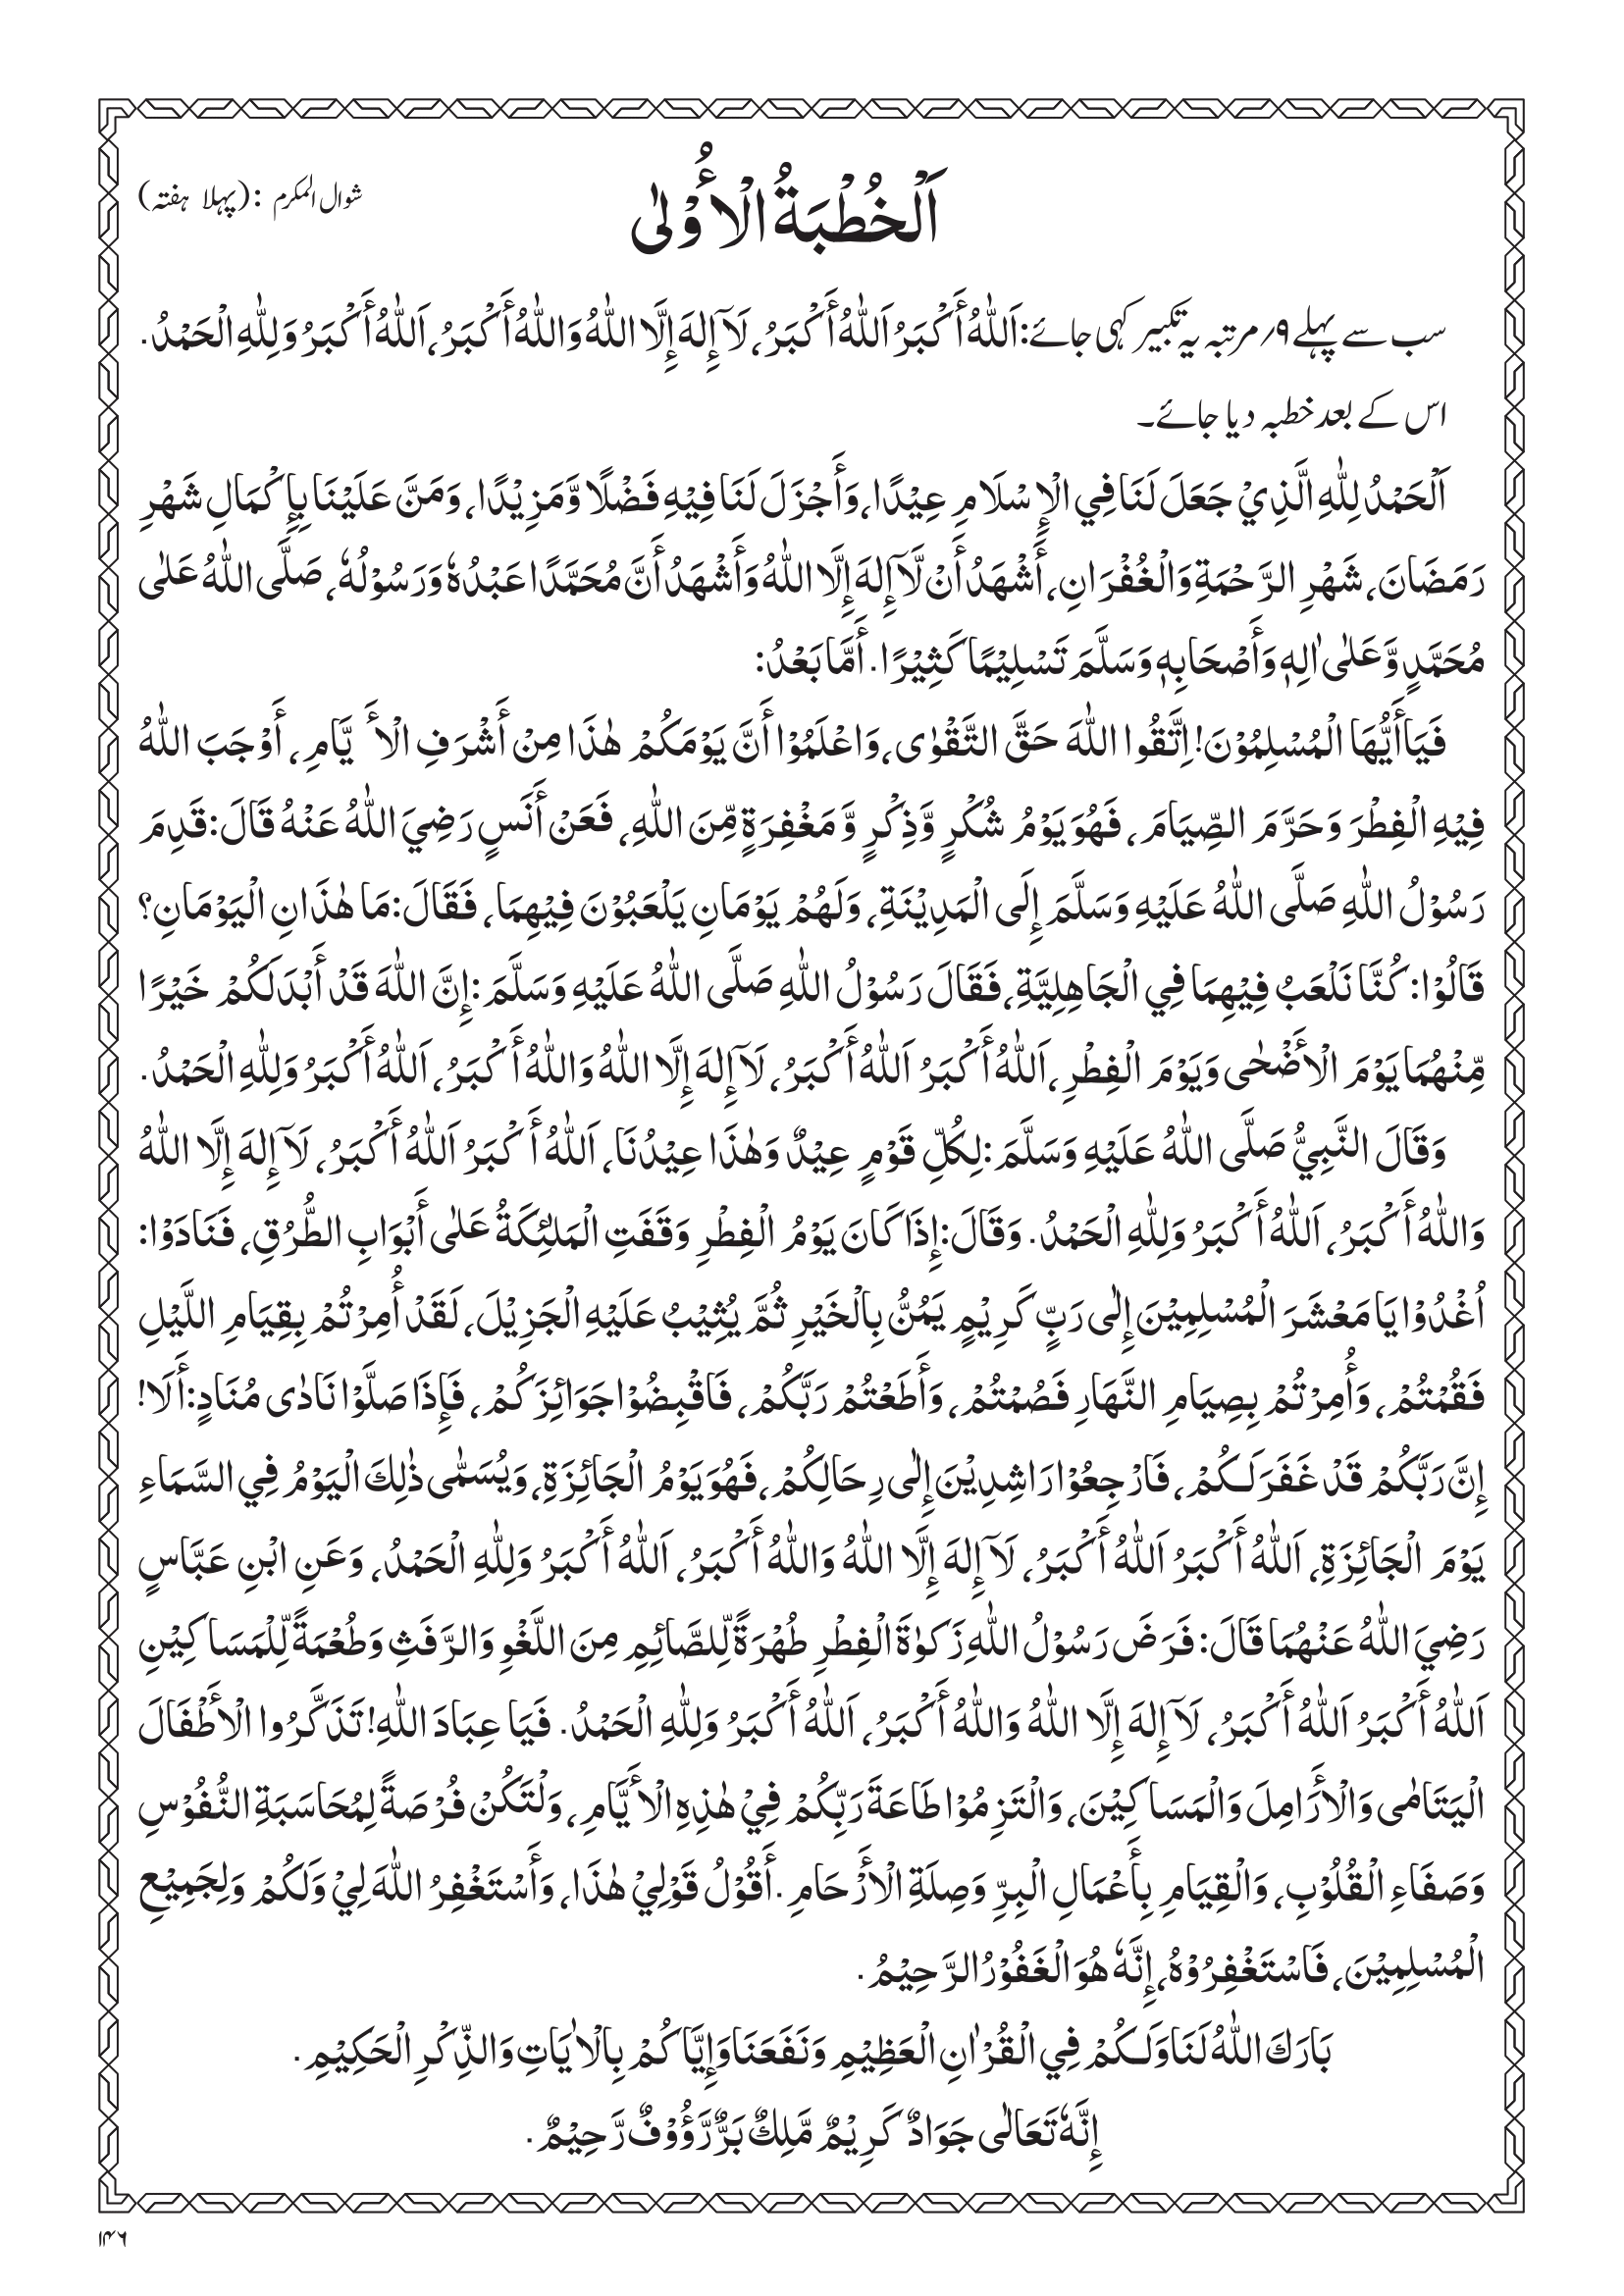 اَلْخُطْبَةُ الْأُوْلٰى
شوال المکرم :(پہلا ہفتہ)
سب سے پہلے ۹؍ مرتبہ یہ تکبیر کہی جائے:اَللّٰهُ أَكْبَرُ اَللّٰهُ أَكْبَرُ، لَآ إِلٰهَ إِلَّا اللّٰهُ وَاللّٰهُ أَكْبَرُ، اَللّٰهُ أَكْبَرُ وَلِلّٰهِ الْحَمْدُ.
اس کے بعد خطبہ دیا جائے۔
اَلْحَمْدُ لِلّٰهِ الَّذِيْ جَعَلَ لَنَا فِي الْإِسْلَامِ عِيْدًا، وَأَجْزَلَ لَنَا فِيْهِ فَضْلًا وَّمَزِيْدًا، وَمَنَّ عَلَيْنَا بِإِكْمَالِ شَهْرِ
رَمَضَانَ، شَهْرِ الرَّحْمَةِ وَالْغُفْرَانِ، أَشْهَدُ أَنْ لَّآ إِلٰهَ إِلَّا اللّٰهُ وَأَشْهَدُ أَنَّ مُحَمَّدًا عَبْدُهٗ وَرَسُوْلُهٗ، صَلَّى اللّٰهُ عَلٰى
مُحَمَّدٍ وَّعَلٰى اٰلِهٖ وَأَصْحَابِهٖ وَسَلَّمَ تَسْلِيْمًا كَثِيْرًا. أَمَّا بَعْدُ:
فَيَاأَيُّهَا الْمُسْلِمُوْنَ! اِتَّقُوا اللّٰهَ حَقَّ التَّقْوٰى، وَاعْلَمُوْا أَنَّ يَوْمَكُمْ هٰذَا مِنْ أَشْرَفِ الْأَيَّامِ، أَوْجَبَ اللّٰهُ
فِيْهِ الْفِطْرَ وَحَرَّمَ الصِّيَامَ، فَهُوَ يَوْمُ شُكْرٍ وَّذِكْرٍ وَّمَغْفِرَةٍ مِّنَ اللّٰهِ، فَعَنْ أَنَسٍ رَضِيَ اللّٰهُ عَنْهُ قَالَ:قَدِمَ
رَسُوْلُ اللّٰهِ صَلَّى اللّٰهُ عَلَيْهِ وَسَلَّمَ إِلَى الْمَدِيْنَةِ، وَلَهُمْ يَوْمَانِ يَلْعَبُوْنَ فِيْهِمَا، فَقَالَ:مَا هٰذَانِ الْيَوْمَانِ؟
قَالُوْا: كُنَّا نَلْعَبُ فِيْهِمَا فِي الْجَاهِلِيَّةِ، فَقَالَ رَسُوْلُ اللّٰهِ صَلَّى اللّٰهُ عَلَيْهِ وَسَلَّمَ:إِنَّ اللّٰهَ قَدْ أَبْدَلَكُمْ خَيْرًا
مِّنْهُمَا يَوْمَ الْأَضْحٰى وَيَوْمَ الْفِطْرِ، اَللّٰهُ أَكْبَرُ اَللّٰهُ أَكْبَرُ، لَآ إِلٰهَ إِلَّا اللّٰهُ وَاللّٰهُ أَكْبَرُ، اَللّٰهُ أَكْبَرُ وَلِلّٰهِ الْحَمْدُ.
وَقَالَ النَّبِيُّ صَلَّى اللّٰهُ عَلَيْهِ وَسَلَّمَ:لِكُلِّ قَوْمٍ عِيْدٌ وَهٰذَا عِيْدُنَا، اَللّٰهُ أَكْبَرُ اَللّٰهُ أَكْبَرُ، لَآ إِلٰهَ إِلَّا اللّٰهُ
وَاللّٰهُ أَكْبَرُ، اَللّٰهُ أَكْبَرُ وَلِلّٰهِ الْحَمْدُ. وَقَالَ:إِذَا كَانَ يَوْمُ الْفِطْرِ وَقَفَتِ الْمَلٰئِكَةُ عَلٰى أَبْوَابِ الطُّرُقِ، فَنَادَوْا:
اُغْدُوْا يَا مَعْشَرَ الْمُسْلِمِيْنَ إِلٰى رَبٍّ كَرِيْمٍ يَمُنُّ بِالْخَيْرِ ثُمَّ يُثِيْبُ عَلَيْهِ الْجَزِيْلَ، لَقَدْ أُمِرْتُمْ بِقِيَامِ اللَّيْلِ
فَقُمْتُمْ، وَأُمِرْتُمْ بِصِيَامِ النَّهَارِ فَصُمْتُمْ، وَأَطَعْتُمْ رَبَّكُمْ، فَاقْبِضُوْا جَوَائِزَكُمْ، فَإِذَا صَلَّوْا نَادٰى مُنَادٍ:أَلَا!
إِنَّ رَبَّكُمْ قَدْ غَفَرَ لَكُمْ، فَارْجِعُوْا رَاشِدِيْنَ إِلٰى رِحَالِكُمْ، فَهُوَ يَوْمُ الْجَائِزَةِ، وَيُسَمّٰى ذٰلِكَ الْيَوْمُ فِي السَّمَاءِ
يَوْمَ الْجَائِزَةِ، اَللّٰهُ أَكْبَرُ اَللّٰهُ أَكْبَرُ، لَآ إِلٰهَ إِلَّا اللّٰهُ وَاللّٰهُ أَكْبَرُ، اَللّٰهُ أَكْبَرُ وَلِلّٰهِ الْحَمْدُ، وَعَنِ ابْنِ عَبَّاسٍ
رَضِيَ اللّٰهُ عَنْهُمَا قَالَ: فَرَضَ رَسُوْلُ اللّٰهِ زَكوٰةَ الْفِطْرِ طُهْرَةً لِّلصَّائِمِ مِنَ اللَّغْوِ وَالرَّفَثِ وَطُعْمَةً لِّلْمَسَاكِيْنِ
اَللّٰهُ أَكْبَرُ اَللّٰهُ أَكْبَرُ، لَآ إِلٰهَ إِلَّا اللّٰهُ وَاللّٰهُ أَكْبَرُ، اَللّٰهُ أَكْبَرُ وَلِلّٰهِ الْحَمْدُ. فَيَا عِبَادَ اللّٰهِ! تَذَكَّرُوا الْأَطْفَالَ
الْيَتَامٰى وَالْأَرَامِلَ وَالْمَسَاكِيْنَ، وَالْتَزِمُوْا طَاعَةَ رَبِّكُمْ فِيْ هٰذِهِ الْأَيَّامِ، وَلْتَكُنْ فُرْصَةً لِمُحَاسَبَةِ النُّفُوْسِ
وَصَفَاءِ الْقُلُوْبِ، وَالْقِيَامِ بِأَعْمَالِ الْبِرِّ وَصِلَةِ الْأَرْحَامِ. أَقُوْلُ قَوْلِيْ هٰذَا، وَأَسْتَغْفِرُ اللّٰهَ لِيْ وَلَكُمْ وَلِجَمِيْعِ
الْمُسْلِمِيْنَ، فَاسْتَغْفِرُوْهُ، إِنَّهٗ هُوَ الْغَفُوْرُ الرَّحِيْمُ.
بَارَكَ اللّٰهُ لَنَا وَلَكُمْ فِي الْقُرْاٰنِ الْعَظِيْمِ وَنَفَعَنَا وَإِيَّاكُمْ بِالْاٰيَاتِ وَالذِّكْرِ الْحَكِيْمِ.
إِنَّهٗ تَعَالٰى جَوَادٌ كَرِيْمٌ مَّلِكٌ بَرٌّ رَّؤُوْفٌ رَّحِيْمٌ.
۱۴۶